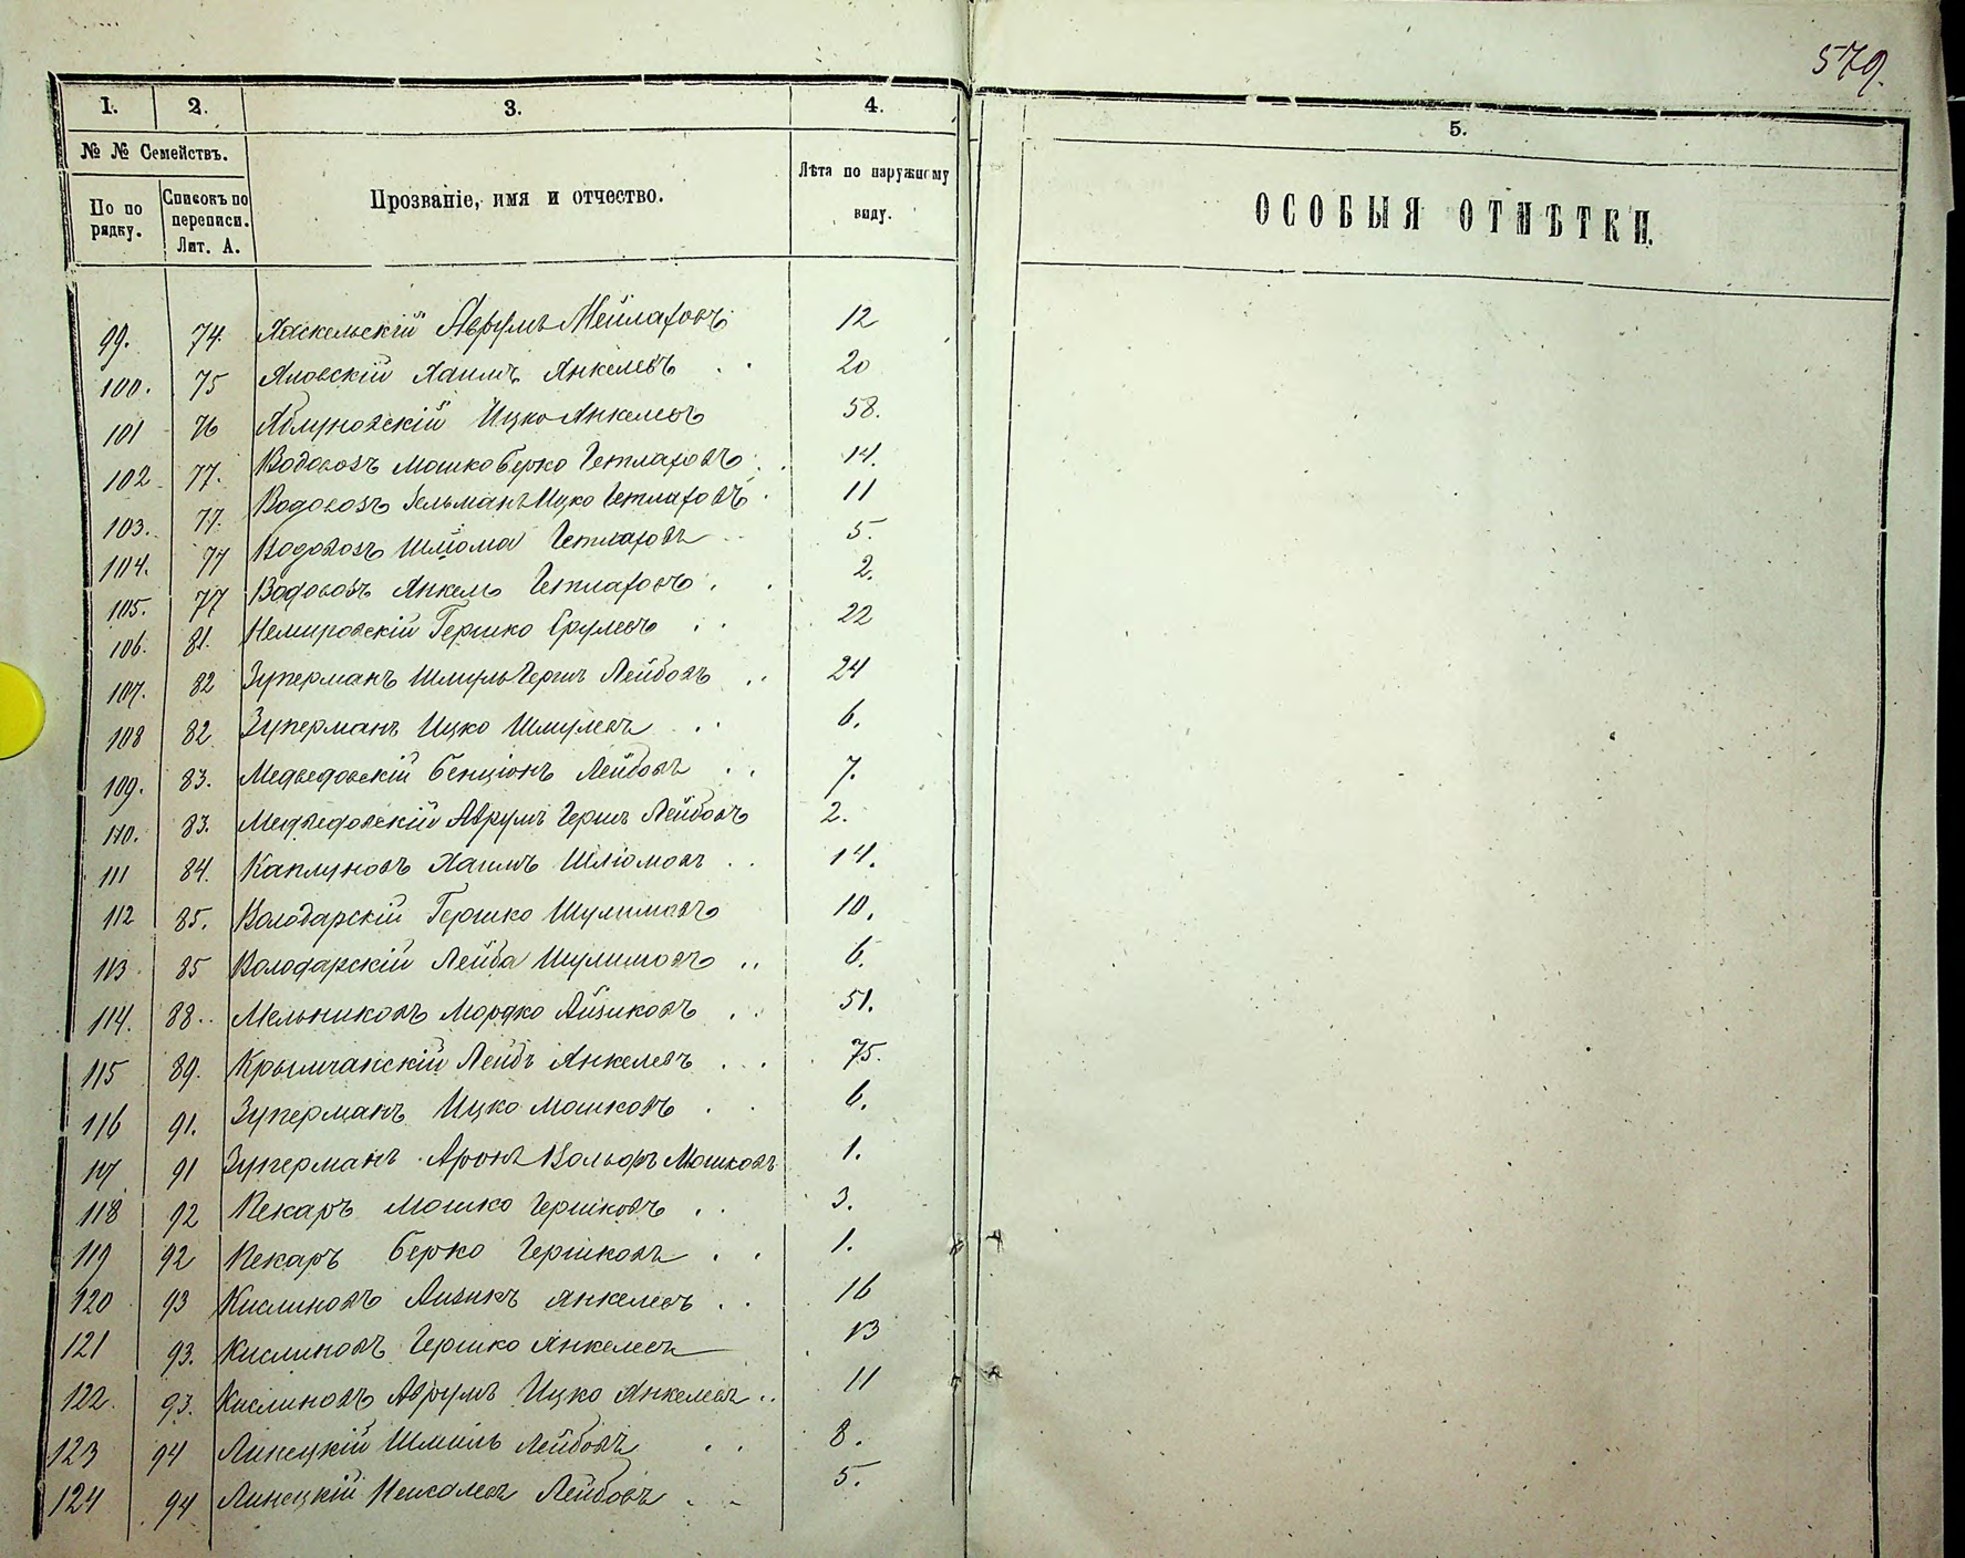 579.
1. 2. 3. 4. 5.
№ № Семействъ.
По по рядку.
Списокъ по переписи. Лит. А.
Прозваніе, имя и отчество.
Лѣта по наружному виду.
ОСОБЫЯ ОТМѢТКИ.
99. 74. Хаскельскій Аврумъ Мейлаховъ 12
100. 75 Яновскій Хаимъ Янкелевъ 20
101 76 Яблуновскій Ицко Янкелевъ 58.
102 77. Водовозъ Мошко Берко Гетлаховъ 14.
103. 77. Водовозъ Зельманъ Ицко Гетлаховъ 11
104. 77 Водовозъ Шліома Гетлаховъ 5.
105. 77 Водовозъ Янкель Гетлаховъ 2.
106. 81. Немировскій Гершко Срулевъ 22
107. 82 Зуперманъ Шмуль Гершъ Лейбовъ 24
108 82 Зуперманъ Ицко Шмулевъ 6.
109. 83. Медведовскій Бенціонъ Лейбовъ 7.
110. 83. Медведовскій Аврумъ Гершъ Лейбовъ 2.
111 84. Каплуновъ Хаимъ Шліомовъ 14.
112 85. Володарскій Гершко Шулимовъ 10.
113 85 Володарскій Лейба Шулимовъ 6.
114. 88. Мельниковъ Мордко Айзиковъ 51.
115 89. Крымчанскій Лейбъ Янкелевъ 75.
116 91. Зуперманъ Ицко Мошковъ 6.
117 91 Зуперманъ Аронъ Вольфъ Мошковъ 1.
118 92 Пекаръ Мошко Гершковъ 3.
119 92 Пекаръ Берко Гершковъ 1.
120 93 Кислиновъ Аизикъ Янкелевъ 16
121 93. Кислиновъ Гершко Янкелевъ 13
122. 93. Кислиновъ Аврумъ Ицко Янкелевъ 11
123 94 Линецкій Шмиль Лейбовъ 8.
124 94 Линецкій Лейбовъ 5.